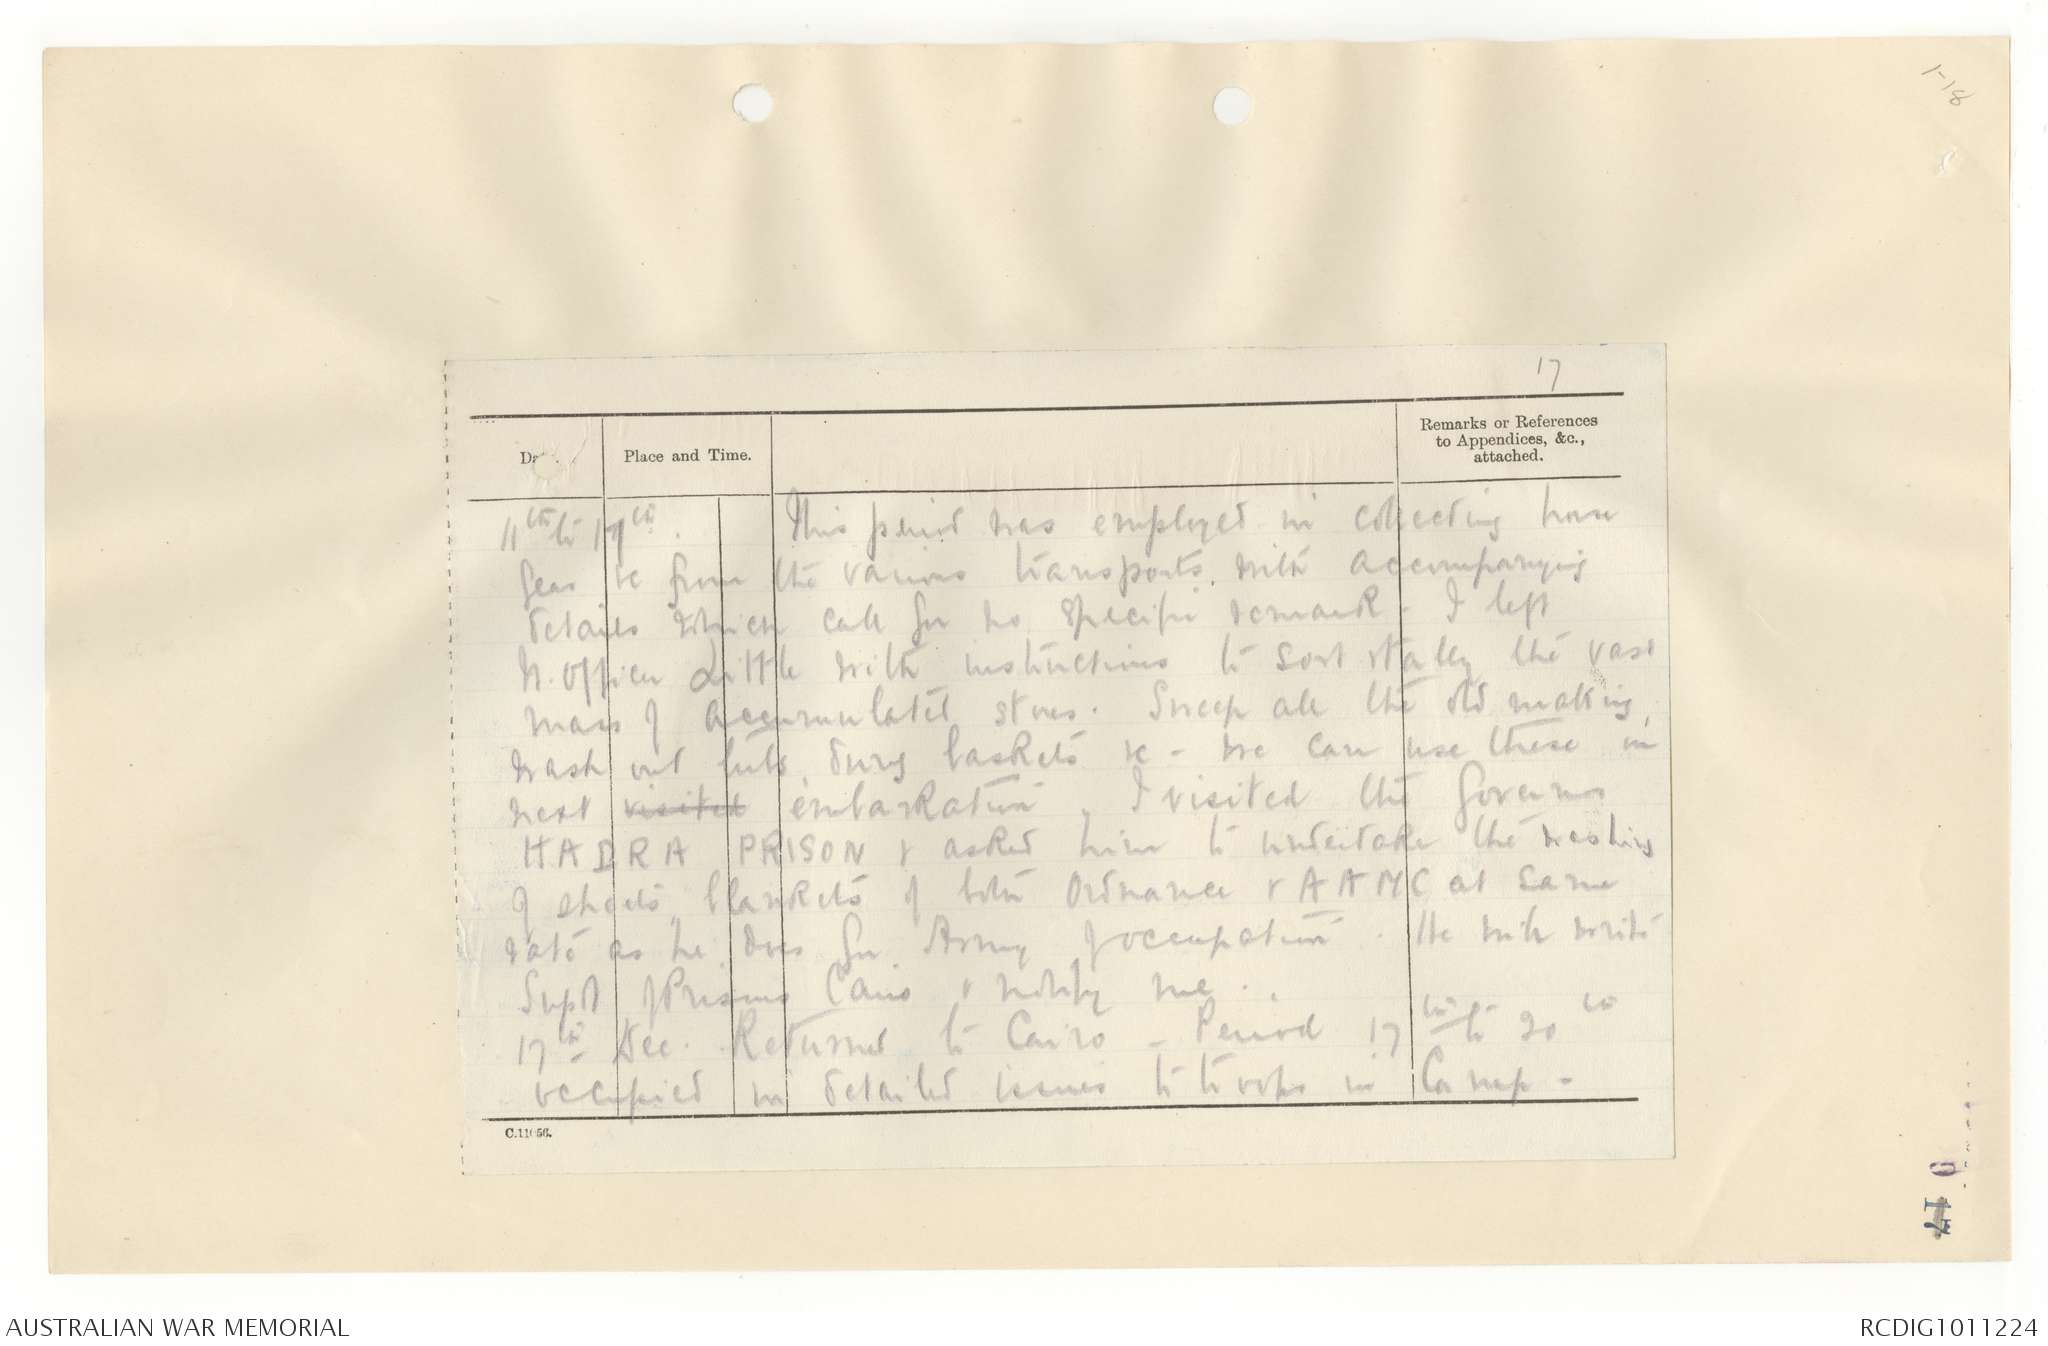 1-18
17
Date
Place and Time.
Remarks or References
to Appendices, &c.,
attached.
11th to 17th. This period was employed in collecting horse
gear &c from the various transports, with accompanying
details which call for no specific remark. I left
W. Officer Little with instructions to sort & tally the vast
mass of accumulated stores. Sweep all the old
wash out tubs, dung baskets &c - we can use these in
next visited embarkation. I visited the Governor
HADRA PRISON & asked him to undertake the washing
of sheets, blankets of both Ordnance & AAMC at same
rate as he does for Army of occupation. He will write
Supt of Prisons Cairo & notify me.
17th Dec. Returned to Cairo - Period 17th to 20th
occupied in detailed issues to troops in Camp -
C.11056.
17
AUSTRALIAN WAR MEMORIAL
RCDIG1011224